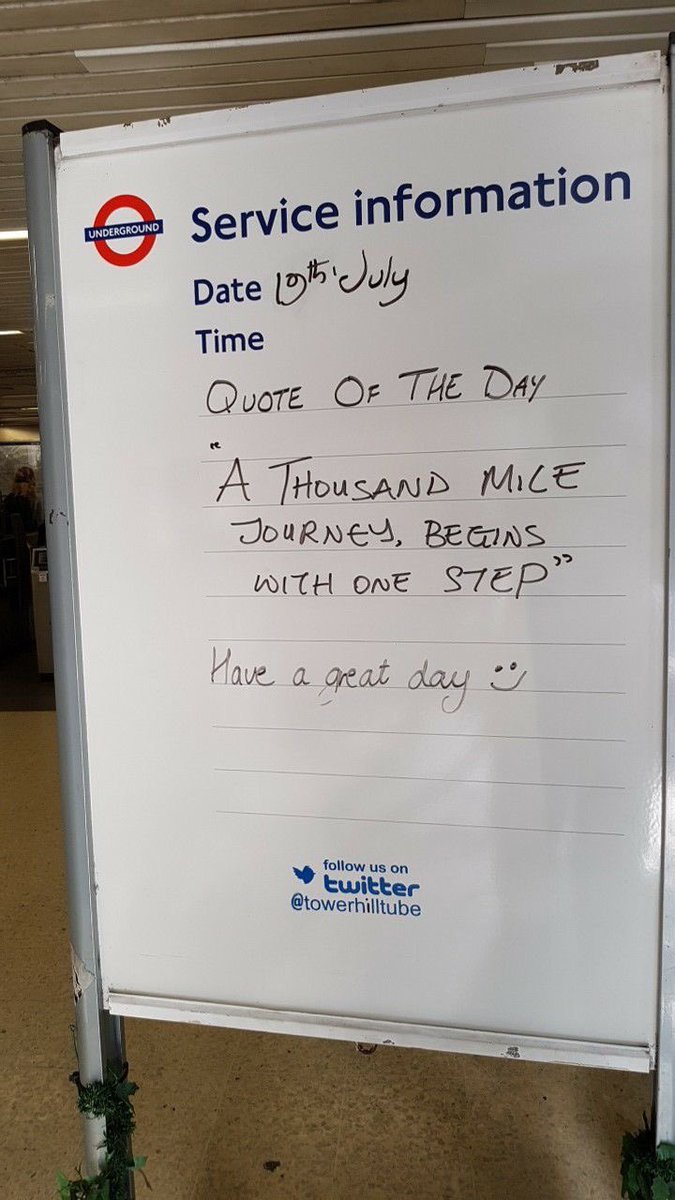 UNDERGROUND
Service information
Date 19th July
Time
QUOTE OF THE DAY
"
A THOUSAND MILE
JOURNEY, BEGINS
WITH ONE STEP"
Have a great day :)
follow us on
twitter
@towerhilltube